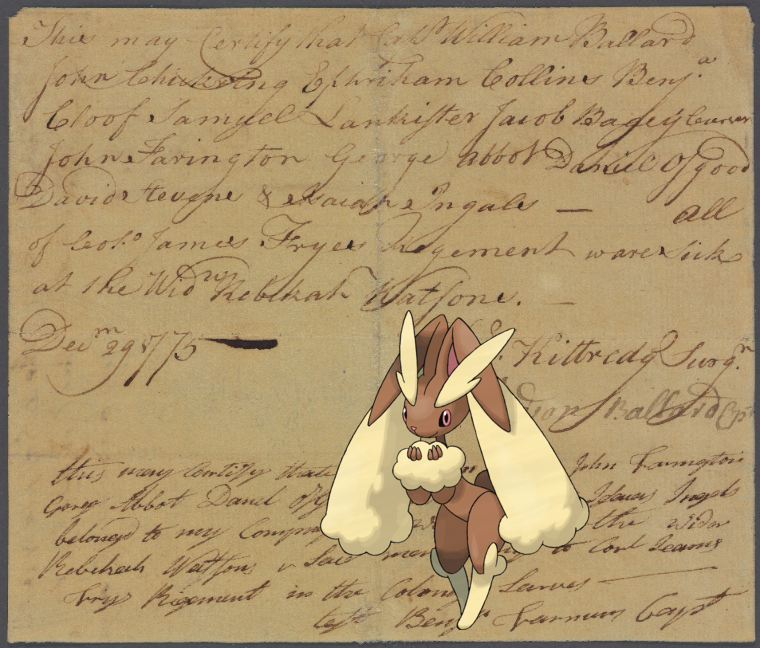 This may Certify that Corp.l William Ballard
John Chickering Ephriham Collins Benj.a
Cloof Samuel Lankister Jacob Bagey Carver
John Farington George abbot Daniel Osgood
David Stevens & Isaiah Ingals — all
of Col.o James Fryes Regement ware sick
at the Wid.w Rebekah Watsons. —
Dec.m 29 1775
Kittredg Surg.n
Ballard Cpt
this may Certify that John Farrington
Gorge Abbot Danel Isaiac Ingels
belonged to my Compny the Wider
Rebekeah Watsons & Said men to Corl Jeams
Frys Rigement in the Colony Sarves
test Benj Varnum Capt